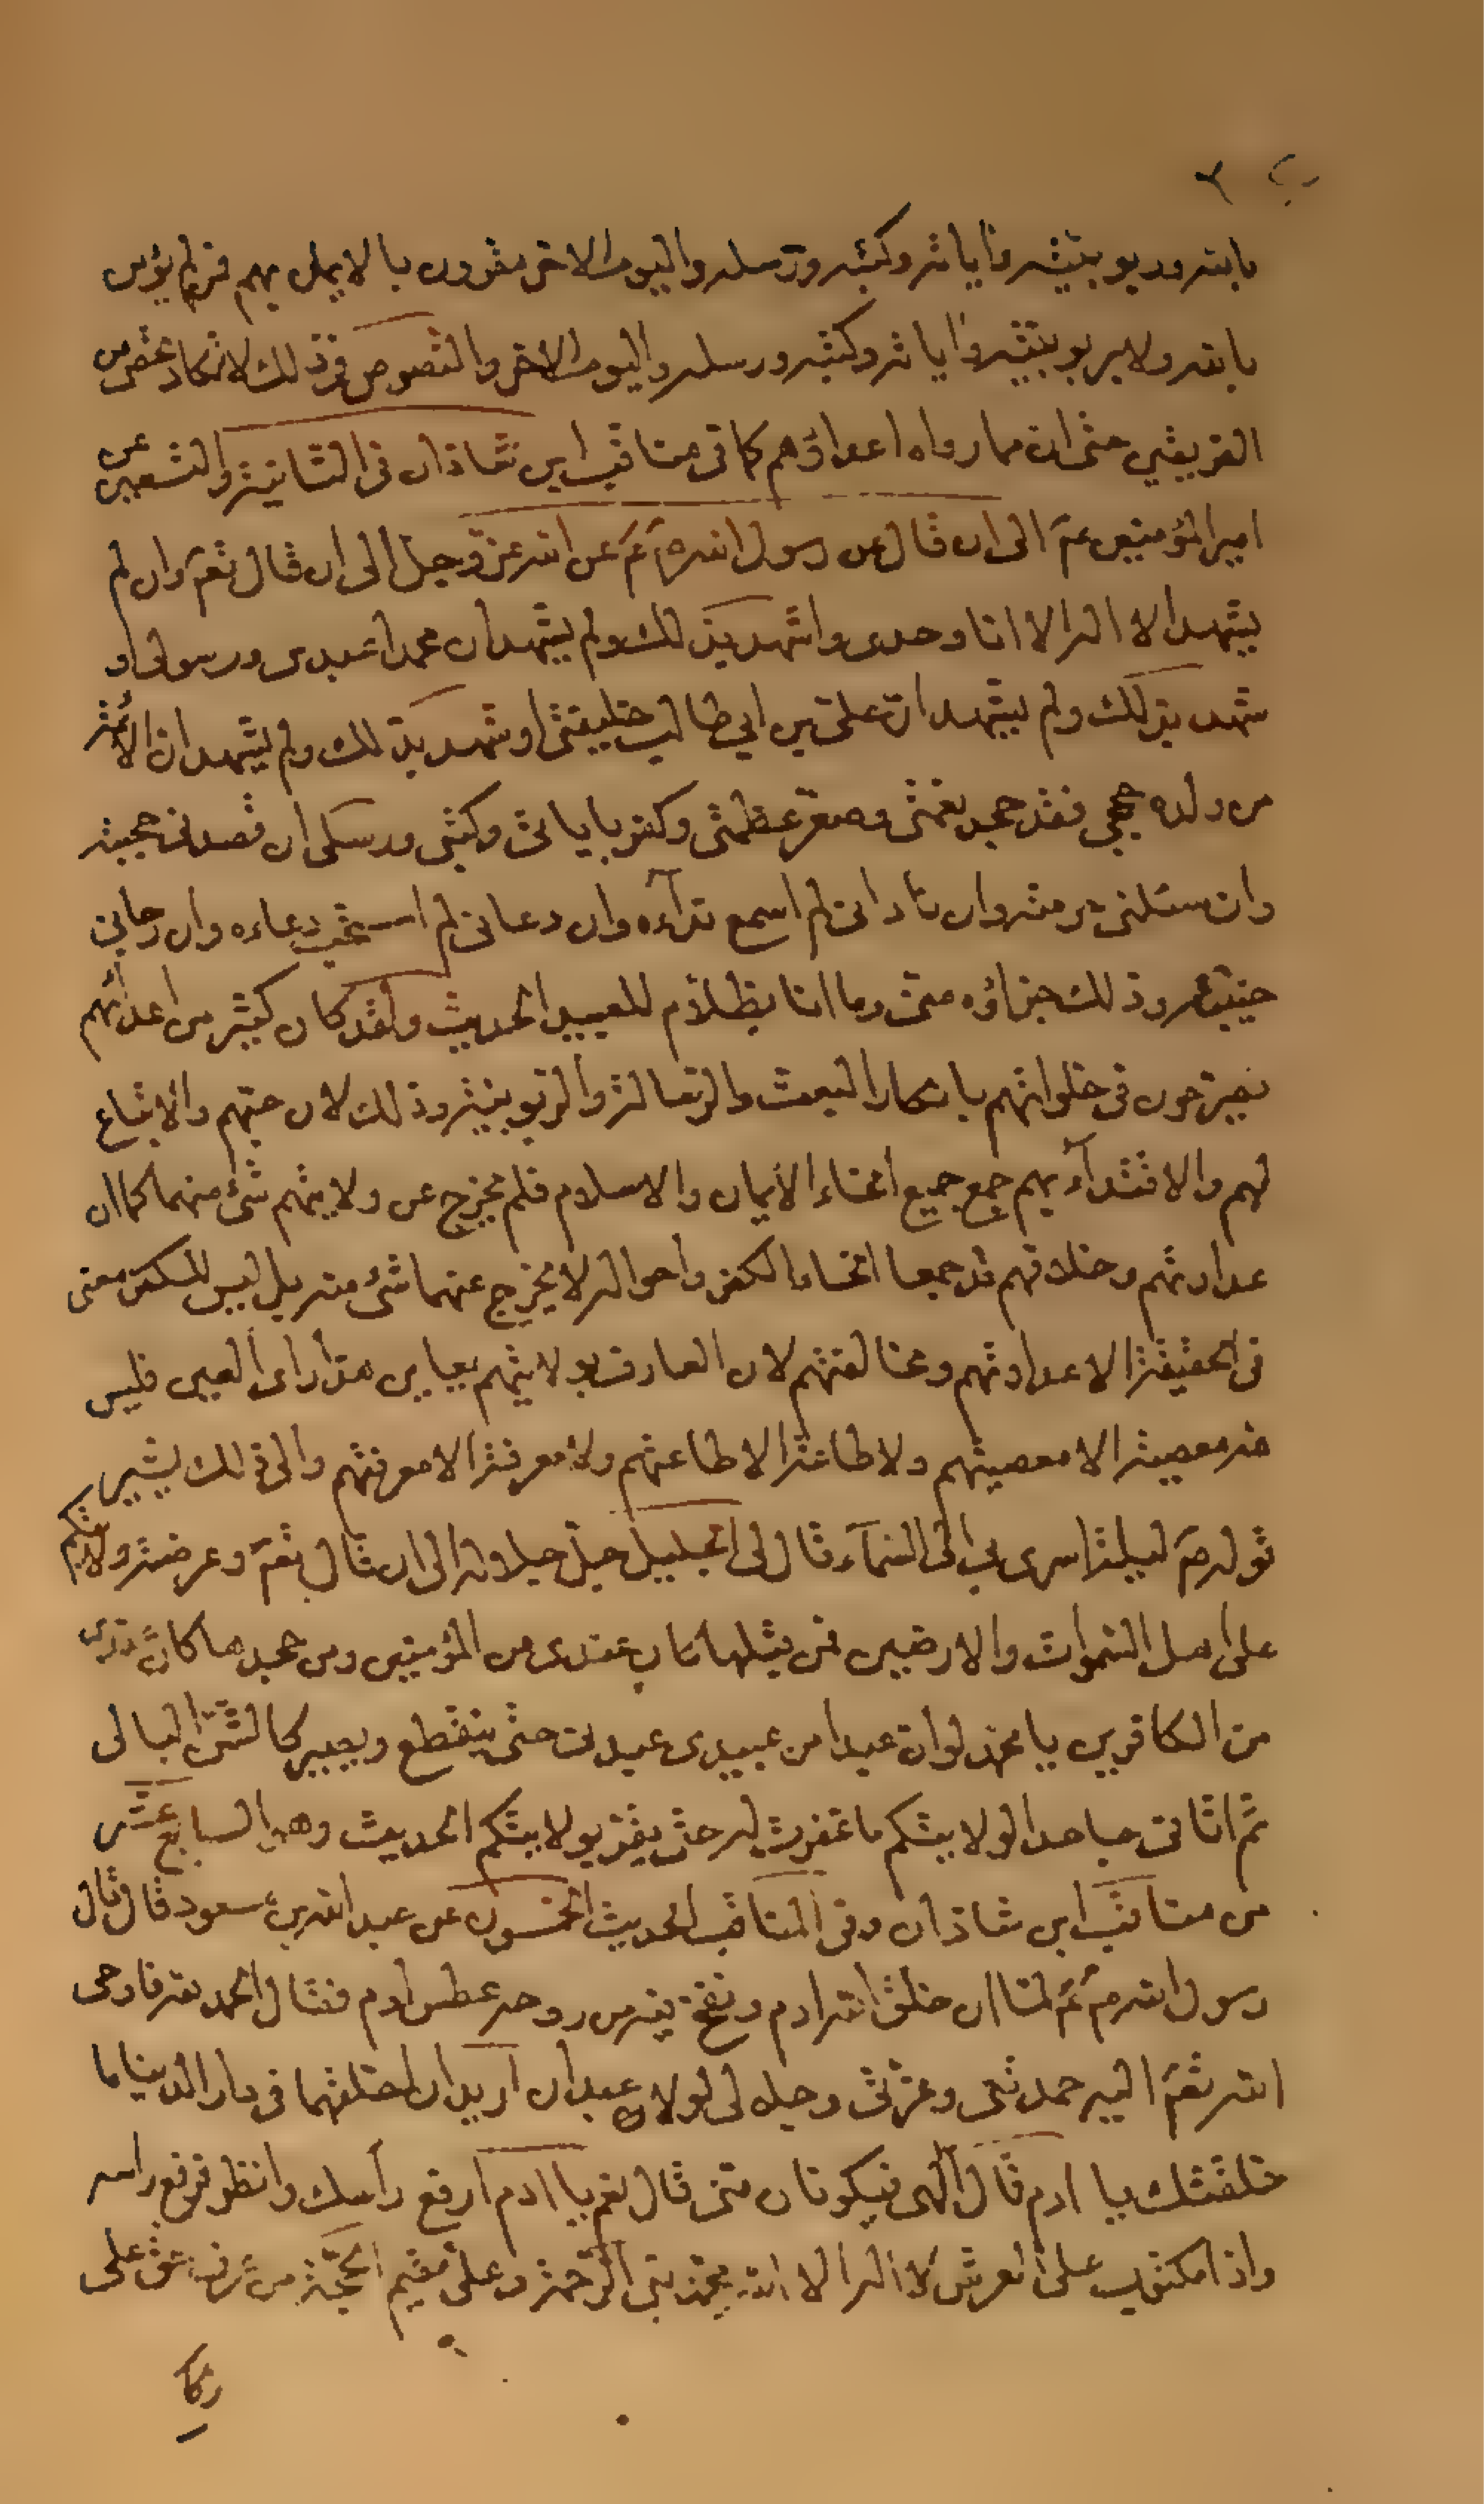 بالله وربوبيته وآياته وكتبه ورسله واليوم الاخر مقرون بالايمان بهم فمن لم يؤمن
بالله ولا بربوبيته وآياته وكتبه ورسله واليوم الاخر والنصوص في ذلك لا تكاد تحصى من
الفريقين حتى ان مما رواه اعداؤهم كما في مناقب ابن شاذان في الثانية والتسعين عن
امير المؤمنين عم الى ان قال عن رسول الله ص عم عن الله عز وجل الى ان قال تعم وان لم
يشهد الا اله الا انا وحدى واشهد بذلك ولم يشهد ان محمدا عبدى ورسولى او
شهد بذلك ولم يشهد ان على بن ابي طالب خليفتى او شهد بذلك ولم يشهد ان الائمة
من ولده حججى فقد جحد نعمتى وصغر عظمتى وكفر باياتى وكتبى ورسلى ان قصدنى حجبته
وان سئلنى حرمته وان نادانى لم اسمع نداءه وان دعانى لم استجب دعاءه وان رجانى
خيبته وذلك جزاؤه منى وما انا بظلام للعبيد الحديث ولقد كان كثير من اعدائهم
يصرحون في خلواتهم بانكار البعث والرسالة والربوبية وذلك لان حبهم والاتباع
لهم والاقتداء بهم جمع جميع انحاء الايمان والاسلام فلم يخرج عن ولايتهم شئ منهما كما ان
عداوتهم وخلافهم قد جمعا انحاء الكفر واحواله لا يخرج عنهما شئ منه بل ليس للكفر معنى
في الحقيقة الا عداوتهم ومخالفتهم لان العارف بولايتهم يعاين هذا راى العين فليس
ثم معصية الا معصيتهم ولا طاعة الا طاعتهم ولا معرفة الا معرفتهم والى ذلك يشير
قوله ص ليلة اسرى بى الى السماء قال لى الجليل جل جلاله الى ان قال تعم وعرضت ولايتكم
على اهل السموات والارضين فمن قبلها كان عندى من المؤمنين ومن جحدها كان عندى
من الكافرين يا محمد لو ان عبدا من عبيدى عبدنى حتى ينقطع ويصير كالشن البالى
ثم اتانى جاحدا لولايتكم ما غفرت له حتى يقر بولايتكم الحديث وهو السابع عشر
من مناقب ابن شاذان وفى المناقب الحديث الخمسون عن عبد الله بن مسعود قال قال
رسول الله ص عم لما ان خلق الله ادم ونفخ فيه من روحه عطس ادم فقال الحمد لله فاوحى
الله تعم اليه حمدتنى وعزتى وجلالى لولا عبدان اريد ان اخلقهما في دار الدنيا ما
خلقتك يا ادم قال الهى فيكونان منى قال نعم يا ادم ارفع راسك وانظر فرفع راسه
واذا مكتوب على العرش لا اله الا الله محمد نبى الرحمة وعلى مقيم الحجة من عرف حق على
زكا